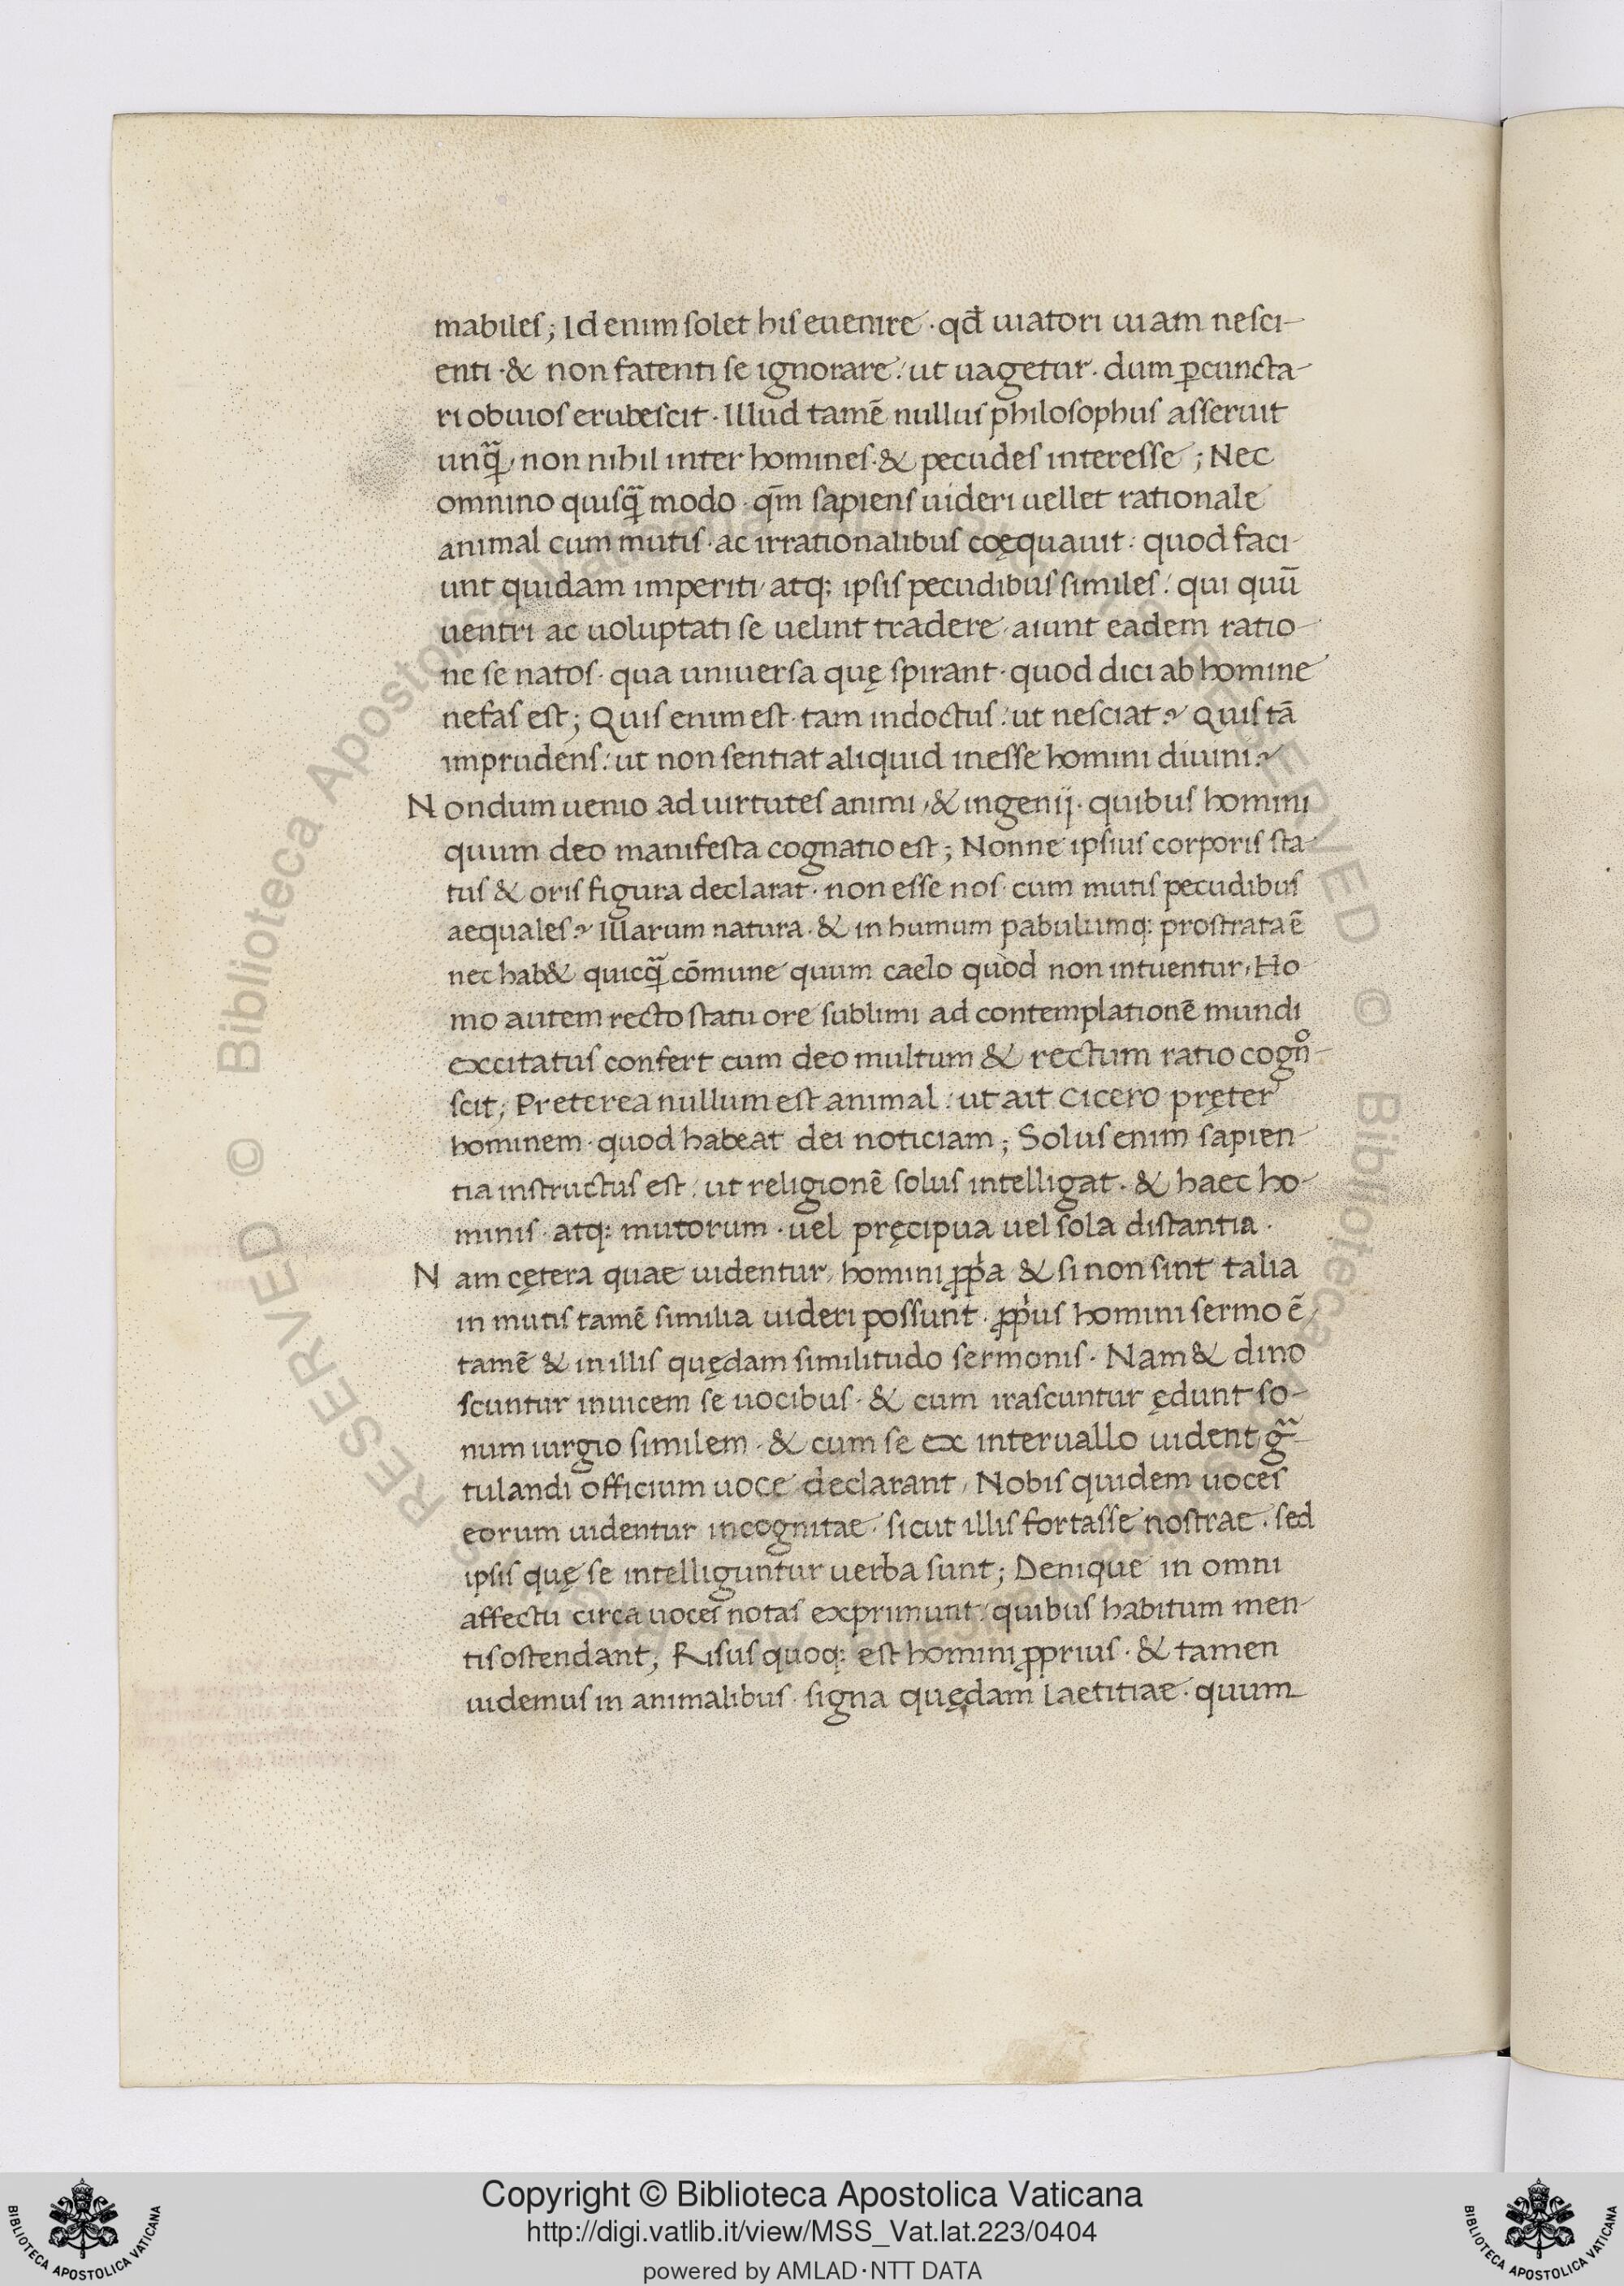 mabiles; Id enim solet his euenire · qđ uiatori uiam nesci-
enti · & non fatenti se ignorare: ut uagetur · dum ꝑcuncta-
ri obuios erubescit · Illud tamē nullus philosophus asseruit
unq̃, non nihil inter homines · & pecudes interesse; Nec
omnino quisq̃ modo · qm̄ sapiens uideri uellet rationale
animal cum mutis · ac irrationalibus coęquauit: quod faci-
unt quidam imperiti, atq: ipsis pecudibus similes: qui quū
uentri ac uoluptati se uelint tradere, aiunt eadem ratio-
ne se natos · qua uniuersa quę spirant · quod dici ab homine
nefas est; Quis enim est · tam indoctus: ut nesciat? Quis tā
imprudens: ut non sentiat aliquid inesse homini diuini?
Nondum uenio ad uirtutes animi, & ingenij · quibus homini
quum deo manifesta cognatio est; Nonne ipsius corporis sta-
tus & oris figura declarat · non esse nos · cum mutis pecudibus
aequales? Illarum natura · & in humum pabulumq: prostrata ē
nec hab& quicq̃ cōmune quum caelo quod non intuentur, Ho-
mo autem recto statu ore sublimi ad contemplationē mundi
excitatus confert cum deo multum & rectum ratio cogno-
scit; Preterea nullum est animal: ut ait Cicero pręter
hominem · quod habeat dei noticiam; Solus enim sapien-
tia instructus est: ut religionē solus intelligat · & haec ho-
minis · atq: mutorum · uel pręcipua uel sola distantia ·
Nam cętera quae uidentur, homini ꝓpͥa & si non sint talia
in mutis tamē similia uideri possunt · ꝓpͥus homini sermo ē,
tamē & in illis quędam similitudo sermonis · Nam & dino
scuntur inuicem se uocibus · & cum irascuntur ędunt so-
num iurgio similem · & cum se ex interuallo uident, gᷓ-
tulandi officium uoce declarant, Nobis quidem uoces
eorum uidentur incognitae · sicut illis fortasse nostrae · sed
ipsis quę se intelliguntur uerba sunt; Denique in omni
affectu circa uoces notas exprimunt: quibus habitum men-
tis ostendant, Risus quoq: est homini ꝓprius · & tamen
uidemus in animalibus · signa quędam laetitiae · quum
Copyright © Biblioteca Apostolica Vaticana
http://digi.vatlib.it/view/MSS_Vat.lat.223/0404
powered by AMLAD·NTT DATA
BIBLIOTECA APOSTOLICA VATICANA
BIBLIOTECA APOSTOLICA VATICANA